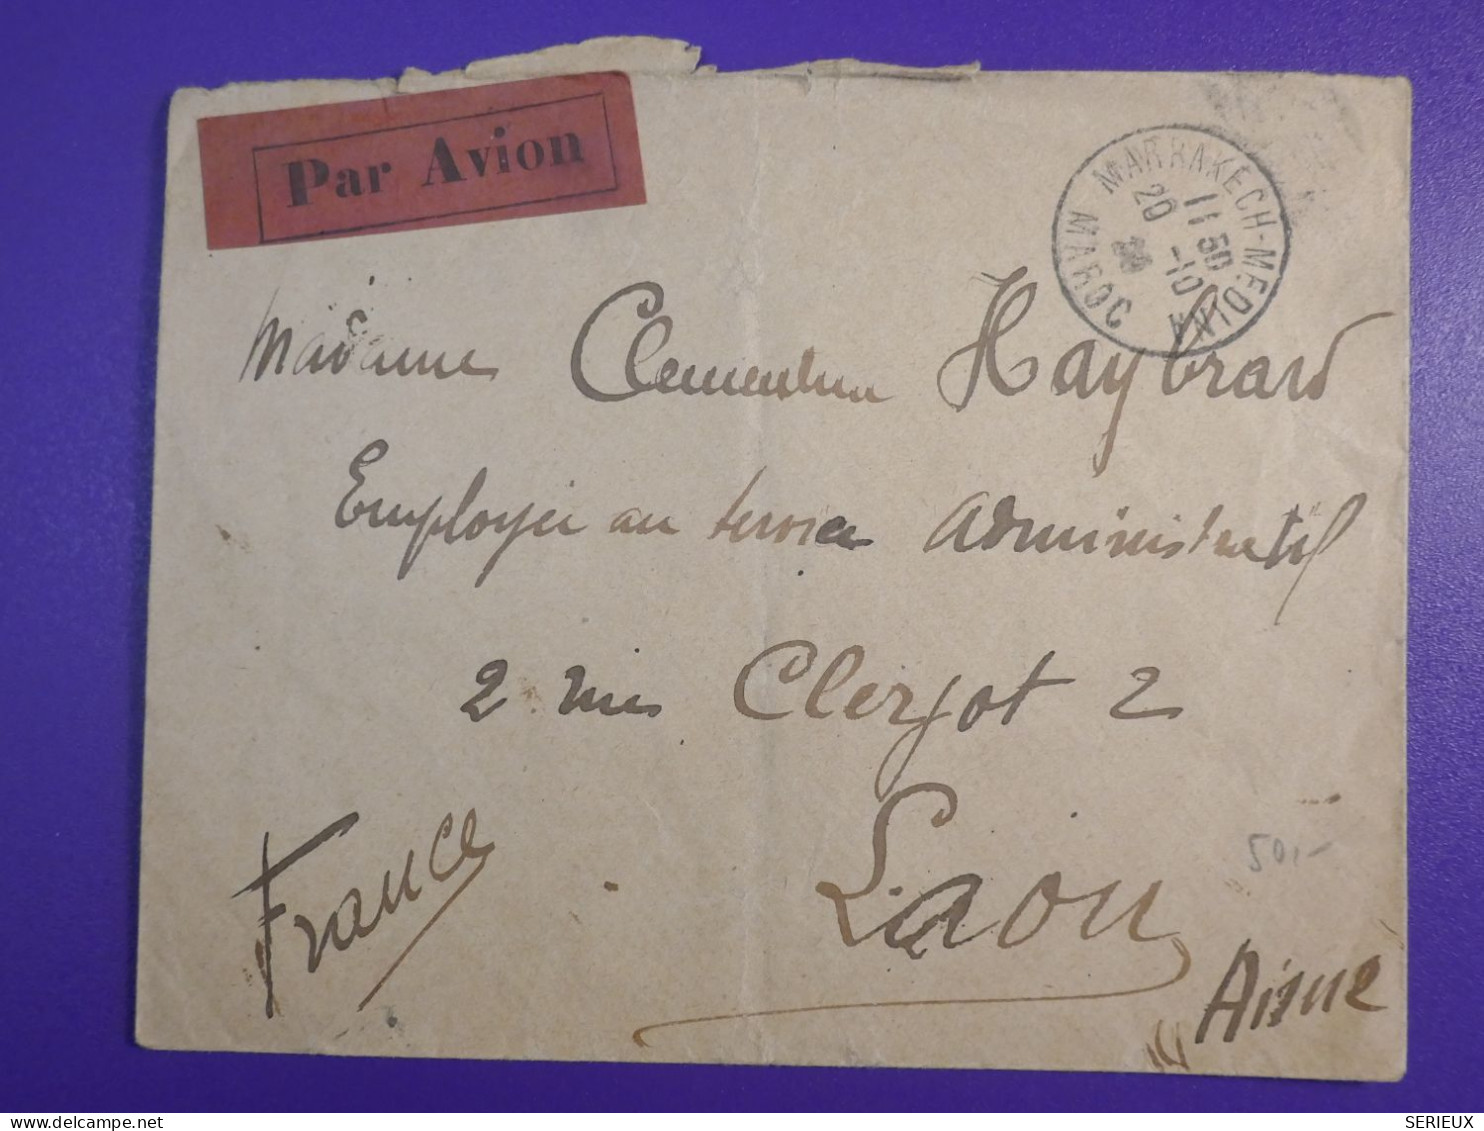 Par Avion
MARRAKECH-MEDINA
11 50
20 -10
MAROC
Madame Clementine Haybrard
Employée au service administratif
2 rue Clerjot 2
Laon
France
Aisne
501-
SERIEUX